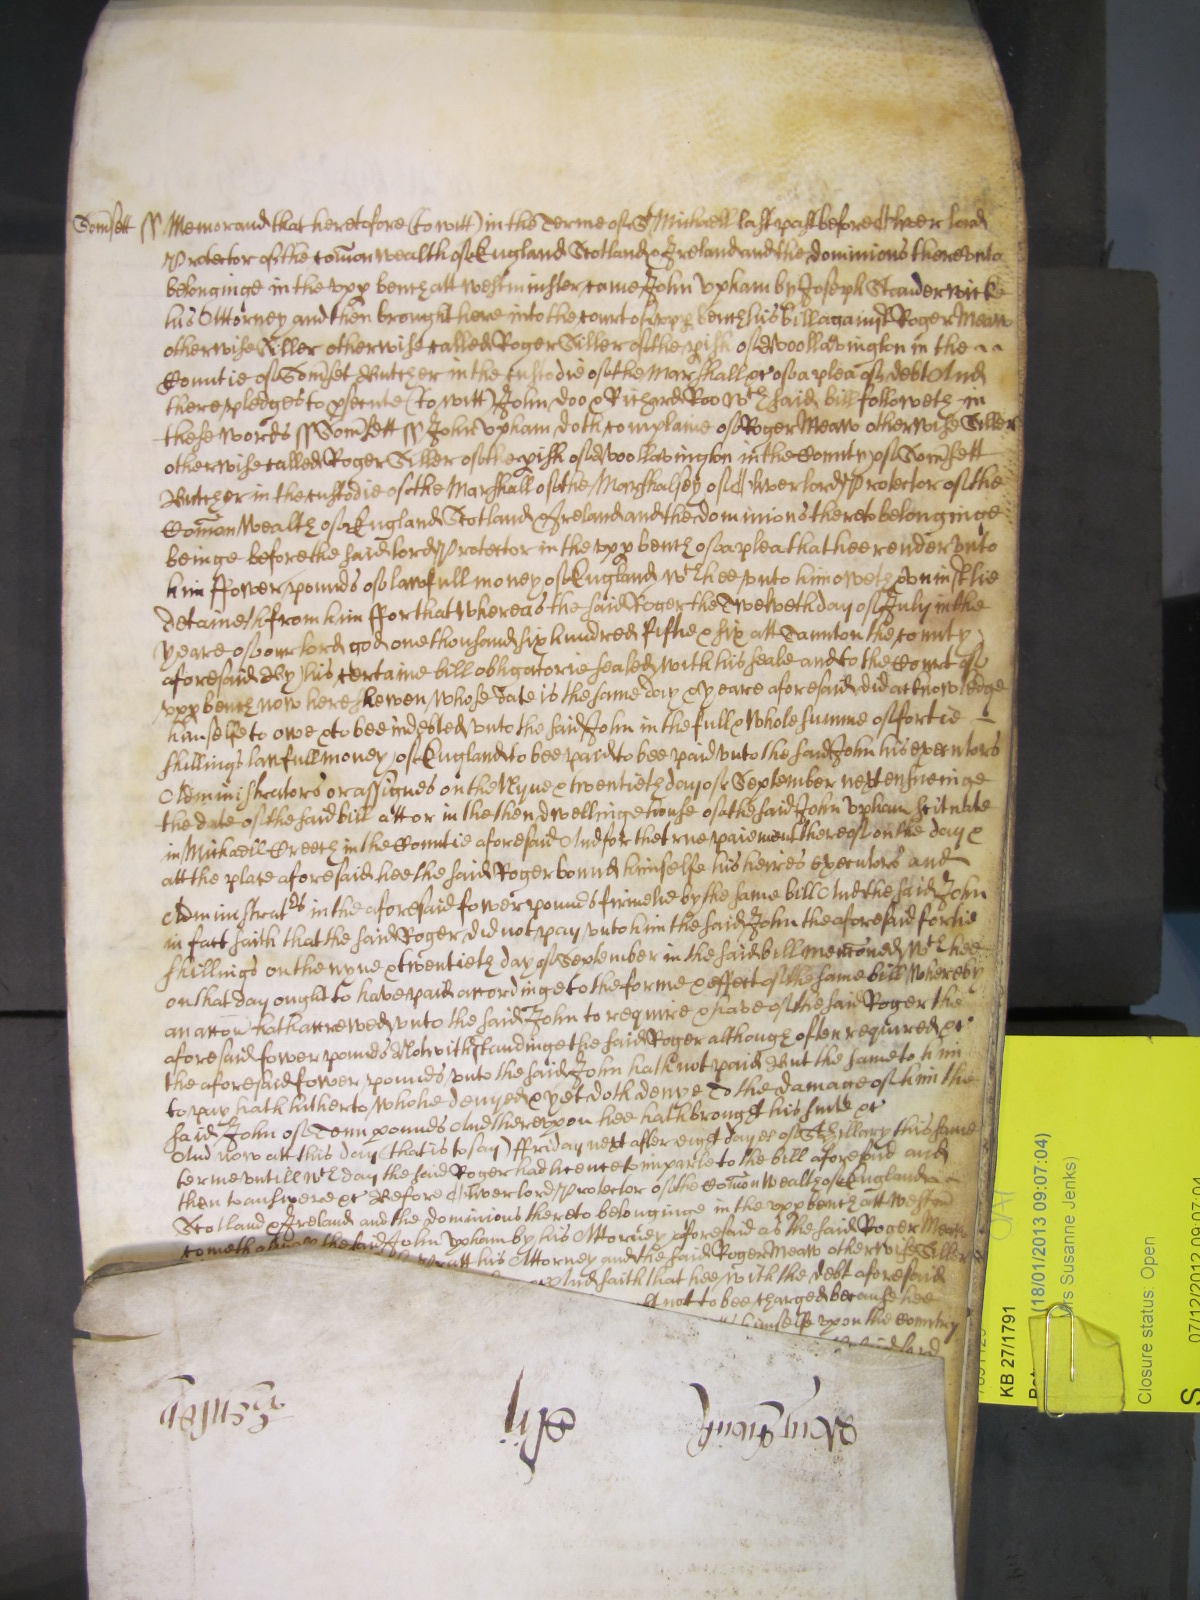 Somsett ss Memorand that heretofore (to witt) in the Terme of St Michaell last past before Oliver lord
Protector of the comon wealth of England Scotland & Ireland and the dominions thereunto
belonginge in the upp bench att westminster came John Upham by Joseph Standerwicke
his Attorney and then brought here into the court of upp bench his bill against Roger Meaw
otherwise Siller otherwise called Roger Siller of the pish of Woollavington in the
Countie of Somset Butcher in the custodie of the Marshall &c of a plea of debt And
there pledges to psecute (to witt) John Doo & Richard Roo wch said bill followeth in
these words ss Somsett ss John Upham doth complaine of Roger Meaw otherwise Siller
otherwise called Roger Siller of the pish of Woollavington in the County of Somsett
Butcher in the custodie of the Marshall of the Marshalsey of Oliver lord Protector of the
Comon Wealth of England Scotland Ireland and the dominions thereto belonginge
beinge before the said lord Protector in the upp bench of a plea that hee render unto
him ffower pounds of lawfull money of England wch hee unto him oweth & uniustlie
detaineth from him ffor that Whereas the said Roger the Twelveth day of July in the
yeare of our lord god one thousand six hundred fiftie & six att Taunton the county
aforesaid by his certaine bill obligatorie sealed with his seale and to the Court of
upp bench now here shewen whose date is the same day & yeare aforesaid did acknowledge
himselfe to owe & to bee indebted unto the said John in the full & whole summe of fortie
shillings lawfull money of England to bee paid to bee paid unto the said John his executors
Administrators or assignes on the Nyne & twentieth day of September next ensueinge
the date of the said bill att or in the then dwellinge house of the said John Upham scituate
in Michaell Creech in the Countie aforesaid And for the true paiement thereof on the day &
att the place aforesaid hee the said Roger bound himselfe his heires executors and
Administratrs in the aforesaid fower pounds firmelie by the same bill And the said John
in fact saith that the said Roger did not pay unto him the said John the aforesaid fortie
shillings on the nyne & twentieth day of September in the said bill menconed wch hee
on that day ought to have paid accordinge to the forme & effect of the same bill Whereby
an accon hath accrewed unto the said John to require & have of the said Roger the
aforesaid fower pounds Notwithstandinge the said Roger although often required &c
the aforesaid fower pounds unto the said John hath not paid But the same to him
to pay hath hitherto wholie denyed & yet doth denye To the damage of him the
said John of Tenn pounds And thereupon hee hath brought his suite &c
And now att this day (that is to say) ffriday next after eight dayes of St Hillary this same
terme untill wch day the said Roger had licence to imparle to the bill aforesaid and
then to answere &c Before Oliver lord Protector of the Comon Wealth of England
Scotland & Ireland and the dominions thereto belonginge in the upp bench att Westm
cometh aswell the said John Upham by his Attorney aforesaid as the said Roger Meaw
att his Attorney and the said Roger Meaw otherwise Siller
And saith that hee with the debt aforesaid
not to bee charged because hee
himselfe upon the Country
KB 27/1791
(18/01/2013 09:07:04)
rs Susanne Jenks)
Closure status: Open
07/12/2012 09:07:04